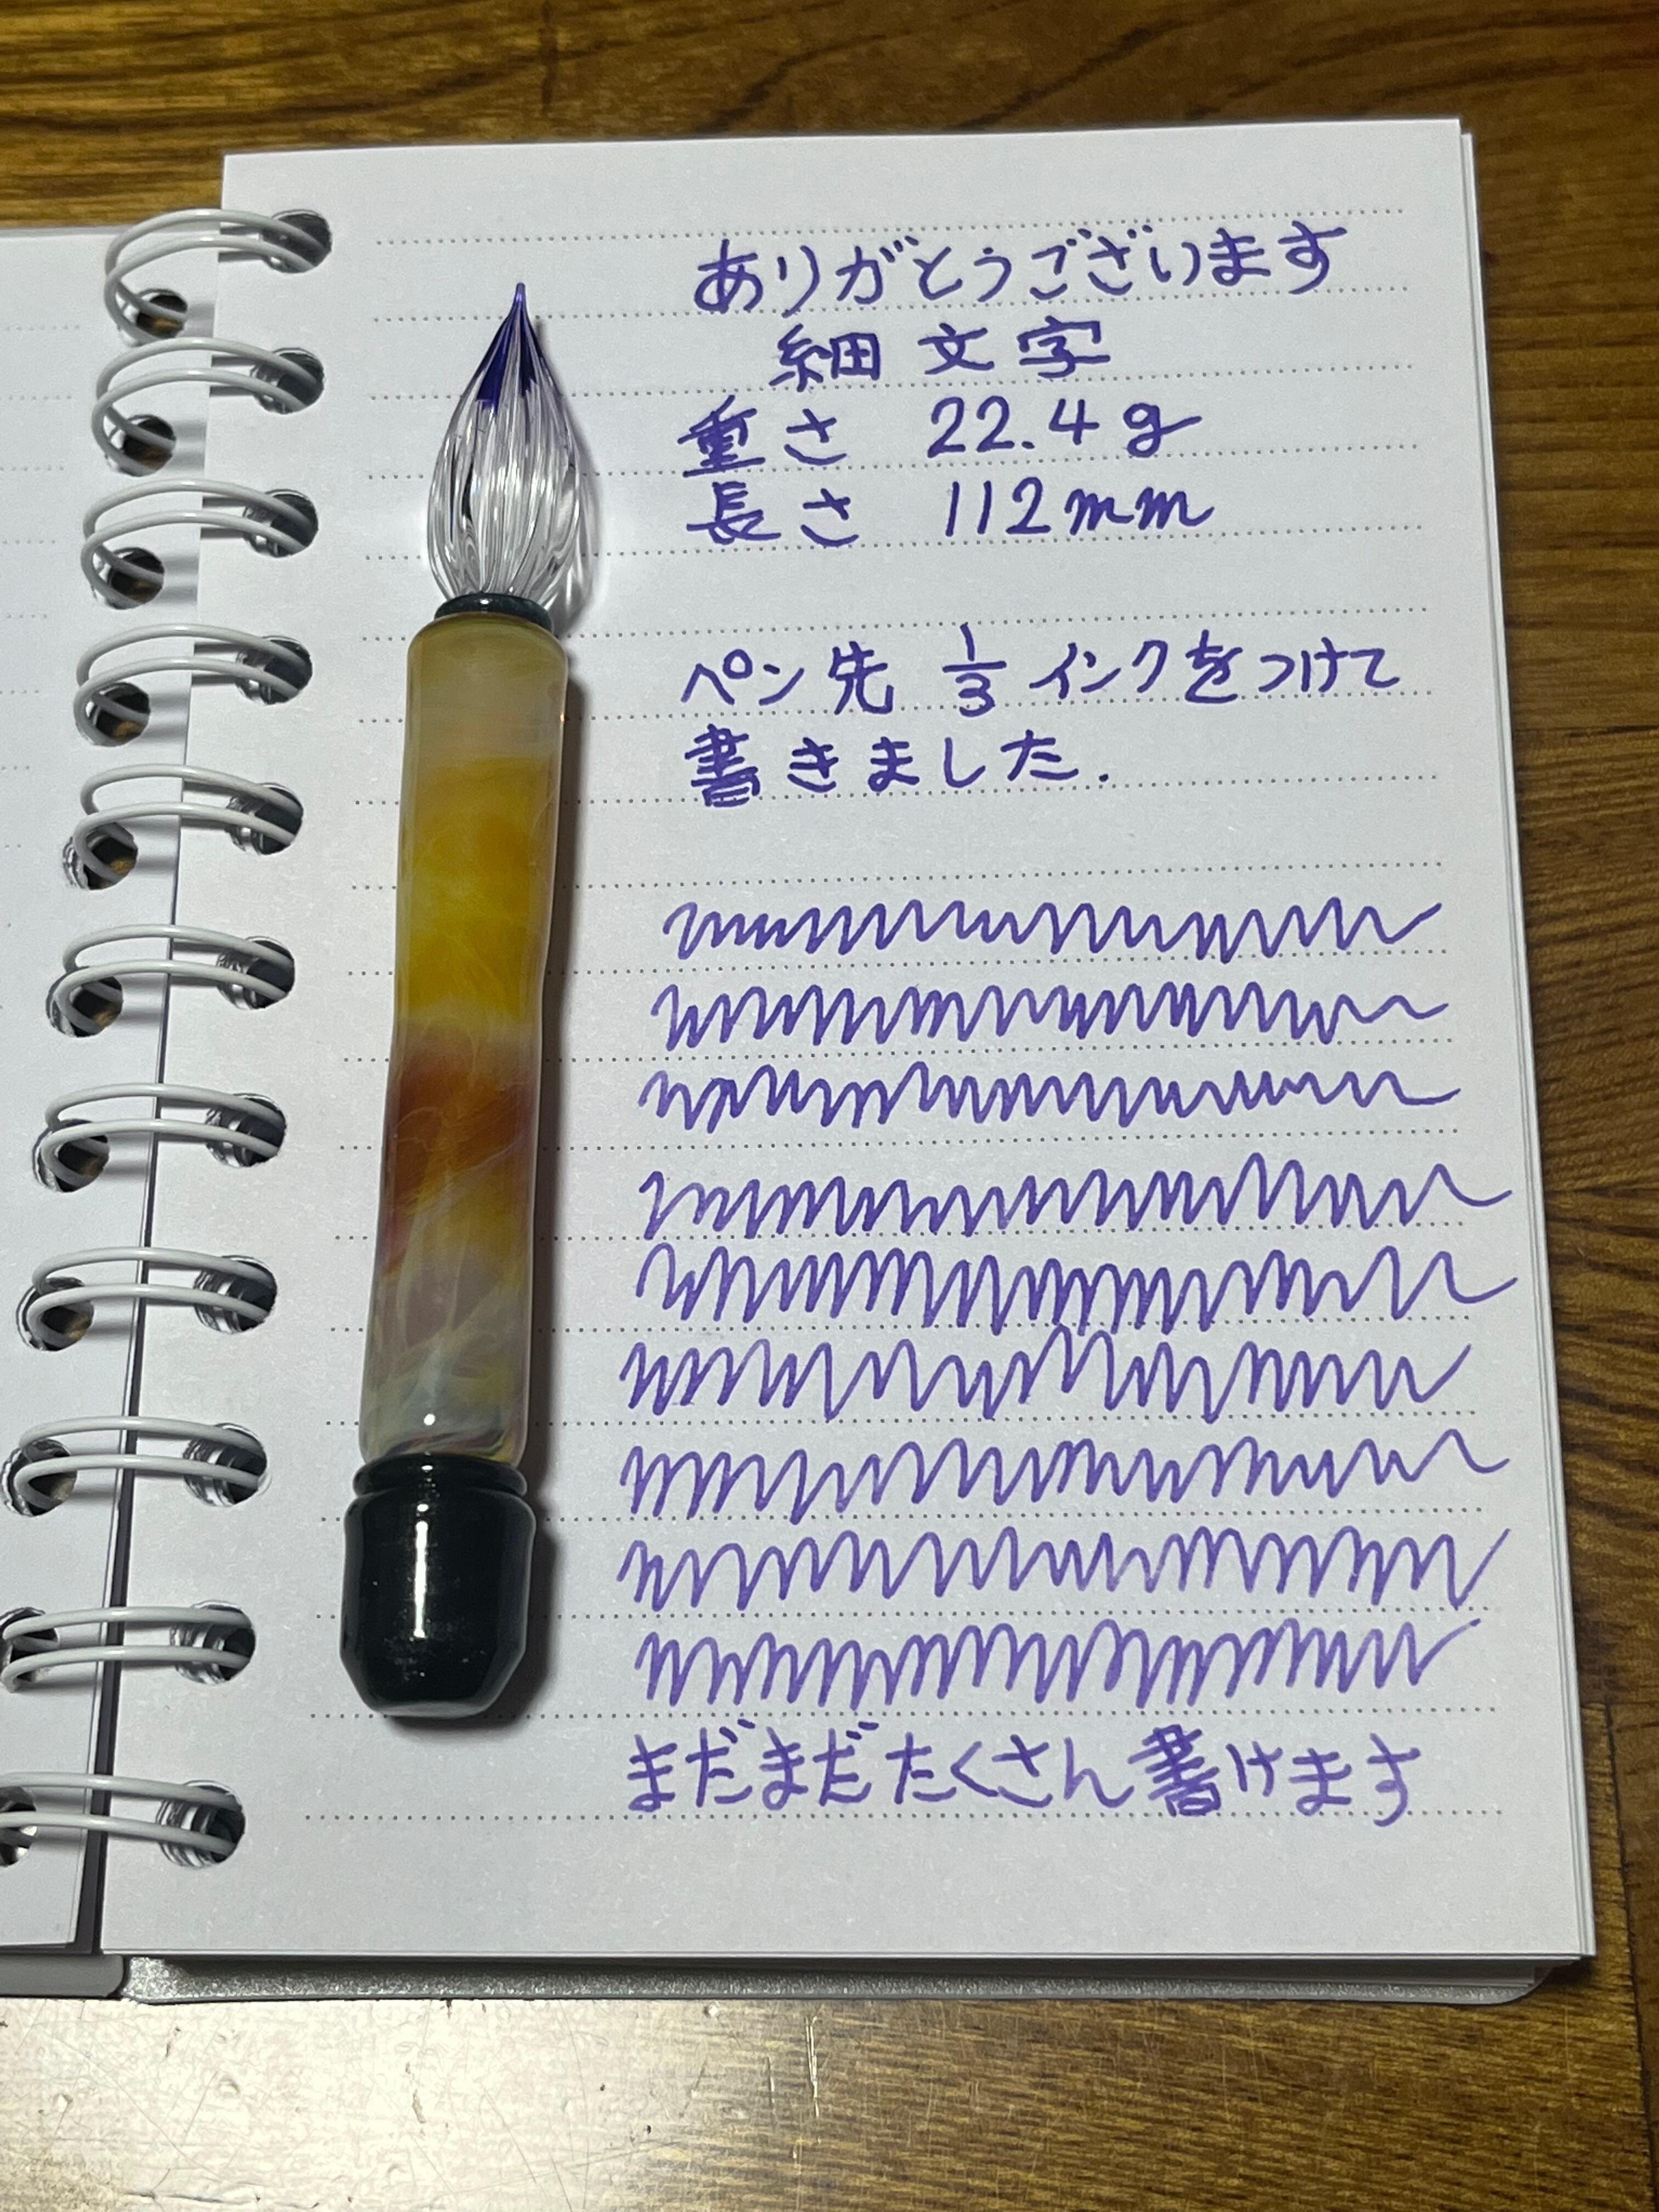 ありがとうございます
細文字
重さ 22.4g
長さ 112mm
ペン先 1/3 インクをつけて
書きました.
まだまだたくさん書けます